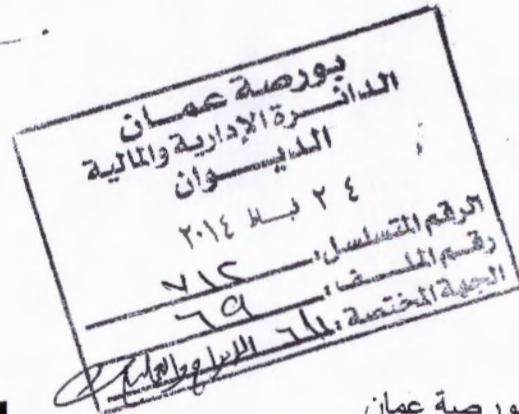 بورصة عمان
الدائرة الإدارية والمالية
الديوان
٢٤ ٢٠١٤
الرقم المتسلسل: ٧١٢
رقم الملف: ٦٩
الجهة المختصة:
بورصة عمان